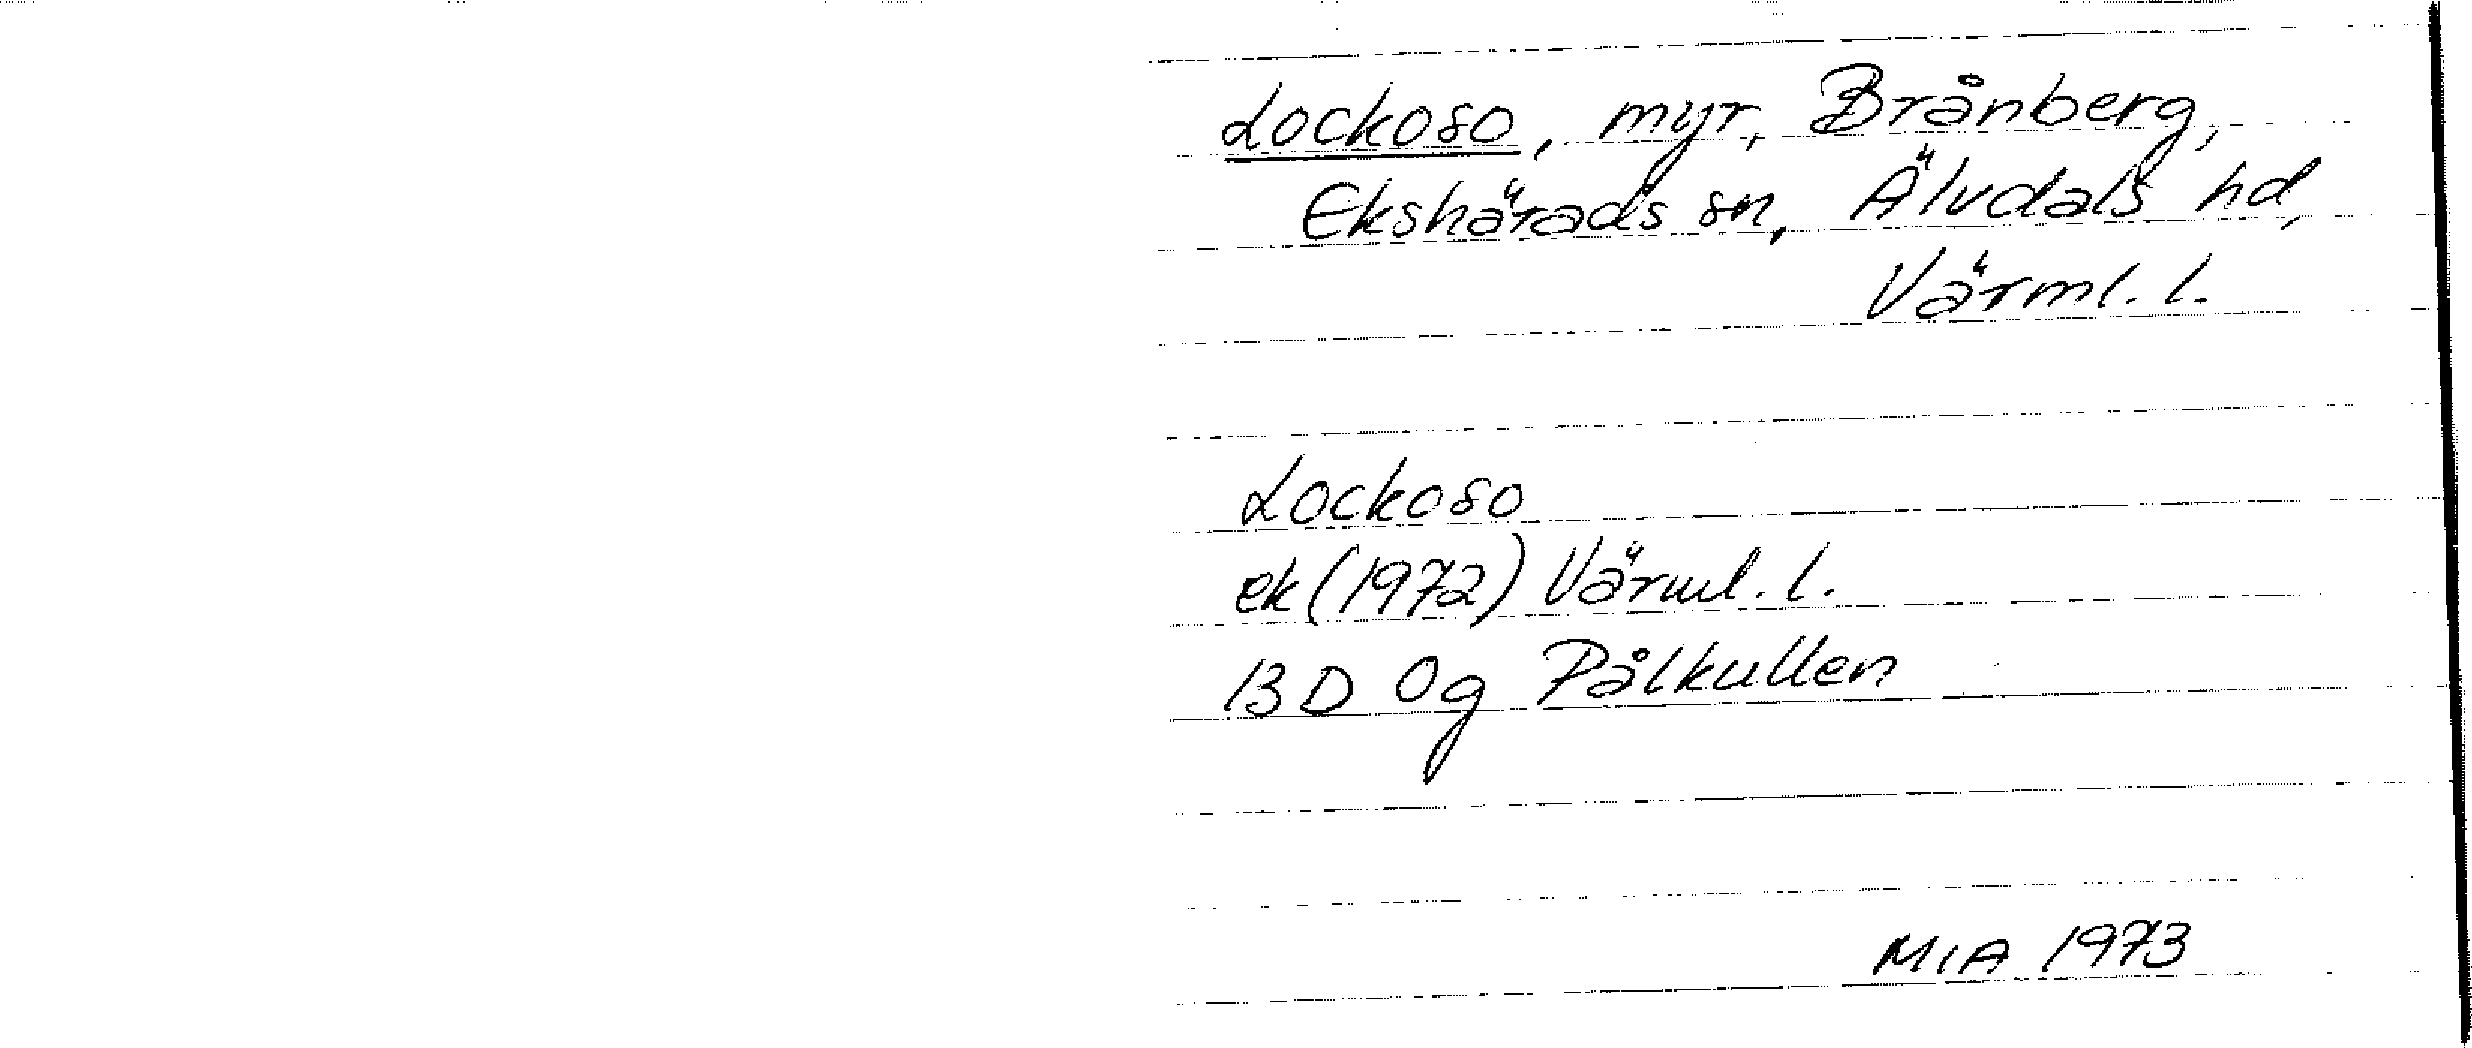 Lockoso, myr, Brånberg,
Ekshärads sn, Älvdals hd,
Värml. l.
Lockoso
ek (1972) Värml. l.
13 D 0g Pålkullen
MIA 1973